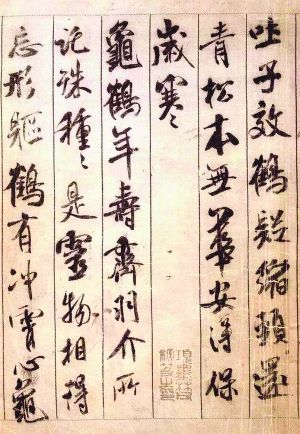 吐子效鶴疑縮頸還
青松本無華安得保
歲寒
龜鶴年壽齊羽介所
託殊種〻是靈物相得
忘形軀鶴有冲霄心龜